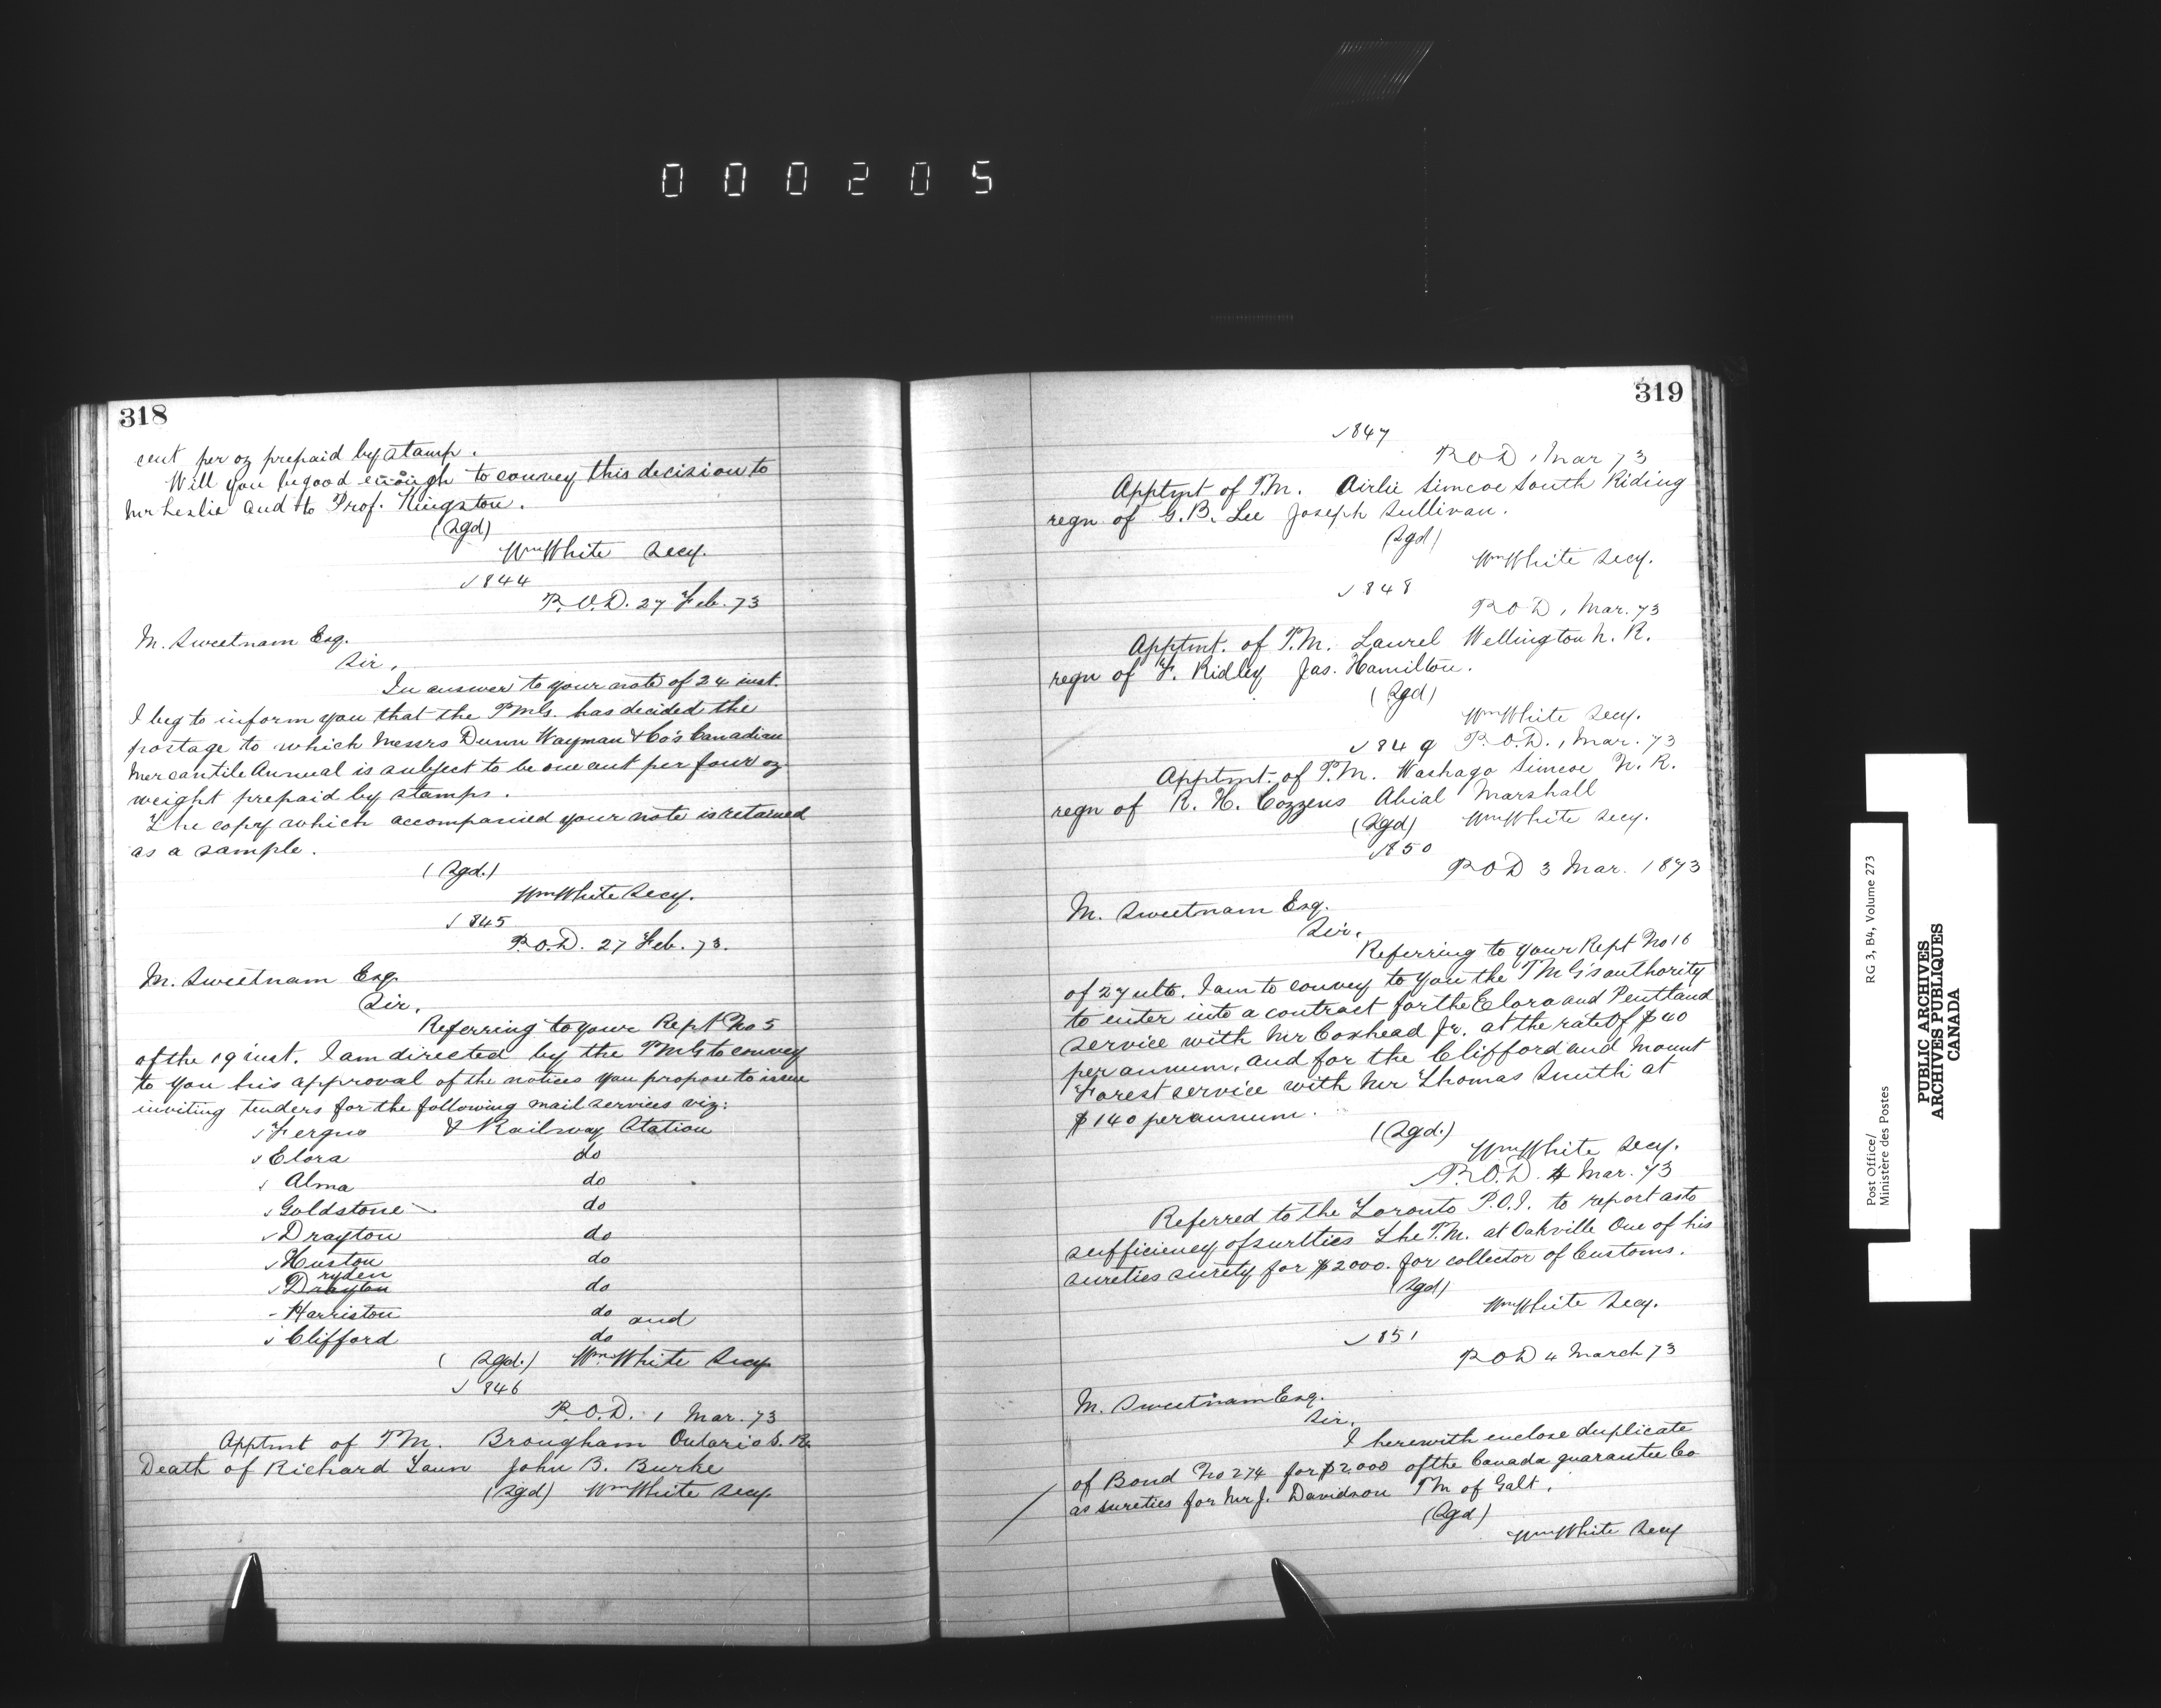 000205
318
cent per oz prepaid by stamp.
Will you be good enough to convey this decision to
Mr Leslie and to Prof. Kingston.
(Sgd)
Wm White Secy.
✓ 844
P.O.D. 27 Feb. 73
M. Sweetnam Esq.
Sir,
In answer to your note of 24 inst.
I beg to inform you that the PMG. has decided the
postage to which Messrs Dunn Wayman & Co's Canadian
Mercantile Annual is subject to be one cent per four oz
weight prepaid by stamps.
The copy which accompanied your note is retained
as a sample.
(Sgd.)
Wm White Secy.
✓ 845
P.O.D. 27 Feb. 73.
M. Sweetnam Esq
Sir,
Referring to your Rept No 5
of the 19 inst. I am directed by the PMG to convey
to you his approval of the notices you propose to issue
inviting tenders for the following mail services viz:
✓ Fergus & Railway Station
✓ Elora do
✓ Alma do
✓ Goldstone do
✓ Drayton do
✓ Huston do
ryden
✓ Drayton do
- Harriston do and
✓ Clifford do
(Sgd.) Wm White Secy
✓ 846
P.O.D. 1 Mar. 73
Apptmt of P.M. Brougham Ontario S. R.
Death of Richard Laun John B. Burke
(Sgd) Wm White Secy.
319
✓ 847
P O D 1 Mar 73
Apptmt of P.M. Airlie Simcoe South Riding
regn of G. B. Lee Joseph Sullivan.
(Sgd)
Wm White Secy.
✓ 848
P O D 1 Mar. 73
Apptmt. of P.M. Laurel Wellington N. R.
regn of F. Ridley Jas. Hamilton.
(Sgd)
Wm White Secy.
✓ 849 P.O.D. 1 Mar. 73
Apptmt. of P.M. Washago Simcoe N. R.
regn of R. H. Cozzens Abial Marshall
(Sgd) Wm White Secy.
✓ 850
P O D 3 Mar. 1873
M. Sweetnam Esq.
Sir,
Referring to your Rept No 16
of 27 ulto. I am to convey to you the PMG's authority
to enter into a contract for the Elora and Pentland
service with Mr Coxhead Jr. at the rate of $40
per annum, and for the Clifford and Mount
Forest service with Mr Thomas Smith at
$140 per annum.
(Sgd.)
Wm White Secy.
P.O.D. 4 Mar. 73
Referred to the Toronto P.O.I. to report as to
sufficiency of surtties The P.M. at Oakville One of his
sureties surety for $2000. for collector of Customs.
(Sgd)
Wm White Secy.
✓ 851
P O D 4 March 73
M. Sweetnam Esq.
Sir,
I herewith enclose duplicate
of Bond No 274 for $2000 of the Canada guarantee Co
as sureties for Mr J. Davidson PM of Galt.
(Sgd)
Wm White Secy
Post Office/ RG 3, B4, Volume 273
Ministère des Postes
PUBLIC ARCHIVES
ARCHIVES PUBLIQUES
CANADA